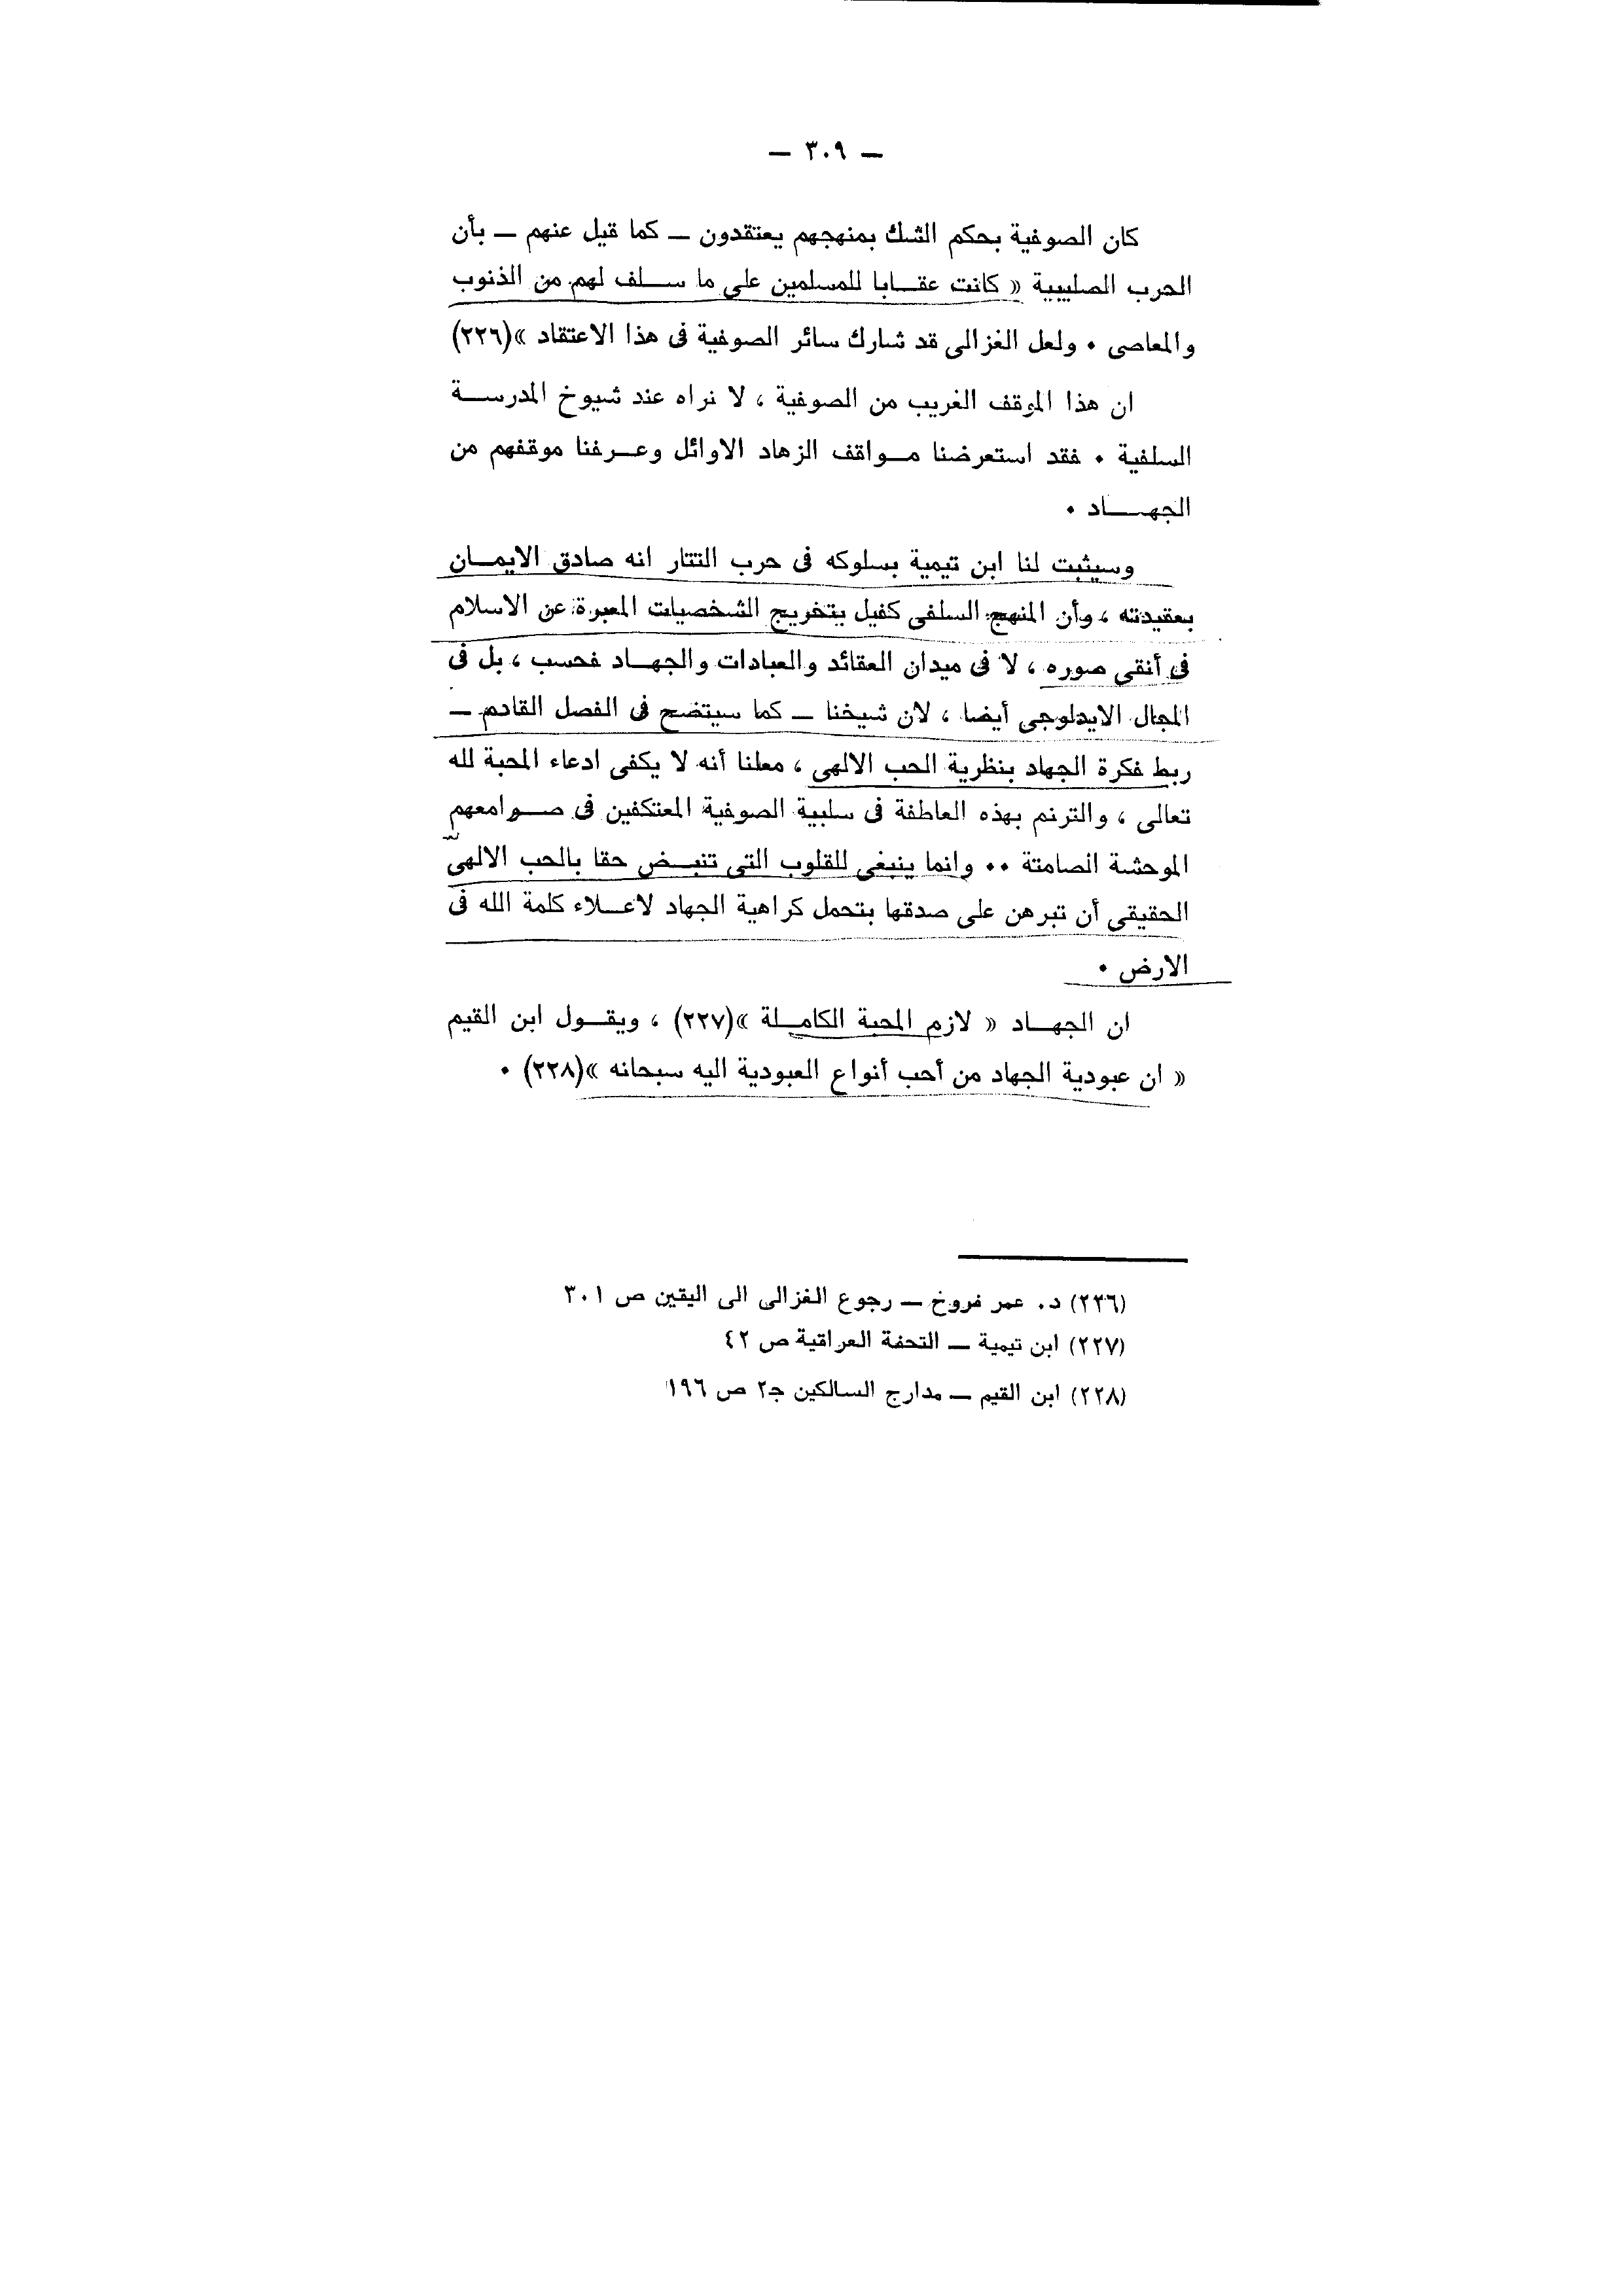 — ٣٠٩ —
كان الصوفية بحكم الشك بمنهجهم يعتقدون — كما قيل عنهم — بأن
الحرب الصليبية « كانت عقـابا للمسلمين على ما سـلف لهم من الذنوب
والمعاصى ٠ ولعل الغزالى قد شارك سائر الصوفية فى هذا الاعتقاد »(٢٢٦)
ان هذا الموقف الغريب من الصوفية ، لا نراه عند شيوخ المدرسـة
السلفية ٠ فقد استعرضنا مـواقف الزهاد الاوائل وعـرفنا موقفهم من
الجهـاد ٠
وسيثبت لنا ابن تيمية بسلوكه فى حرب التتار انه صادق الايمـان
بعقيدته ، وأن المنهج السلفى كفيل بتخريج الشخصيات المعبرة عن الاسلام
فى أنقى صوره ، لا فى ميدان العقائد والعبادات والجهـاد فحسب ، بل فى
المجال الايدلوجى أيضا ، لان شيخنا — كما سيتضح فى الفصل القادم —
ربط فكرة الجهاد بنظرية الحب الالهى ، معلنا أنه لا يكفى ادعاء المحبة لله
تعالى ، والترنم بهذه العاطفة فى سلبية الصوفية المعتكفين فى صـوامعهم
الموحشة الصامتة ٠٠ وانما ينبغى للقلوب التى تنبـض حقا بالحب الالهى
الحقيقى أن تبرهن على صدقها بتحمل كراهية الجهاد لاعـلاء كلمة الله فى
الارض ٠
ان الجهـاد « لازم المحبة الكامـلة »(٢٢٧) ، ويقـول ابن القيم
« ان عبودية الجهاد من أحب أنواع العبودية اليه سبحانه »(٢٢٨) ٠
(٢٢٦) د. عمر فروخ — رجوع الغزالى الى اليقين ص ٣٠١
(٢٢٧) ابن تيمية — التحفة العراقية ص ٤٢
(٢٢٨) ابن القيم — مدارج السالكين ج٢ ص ١٩٦